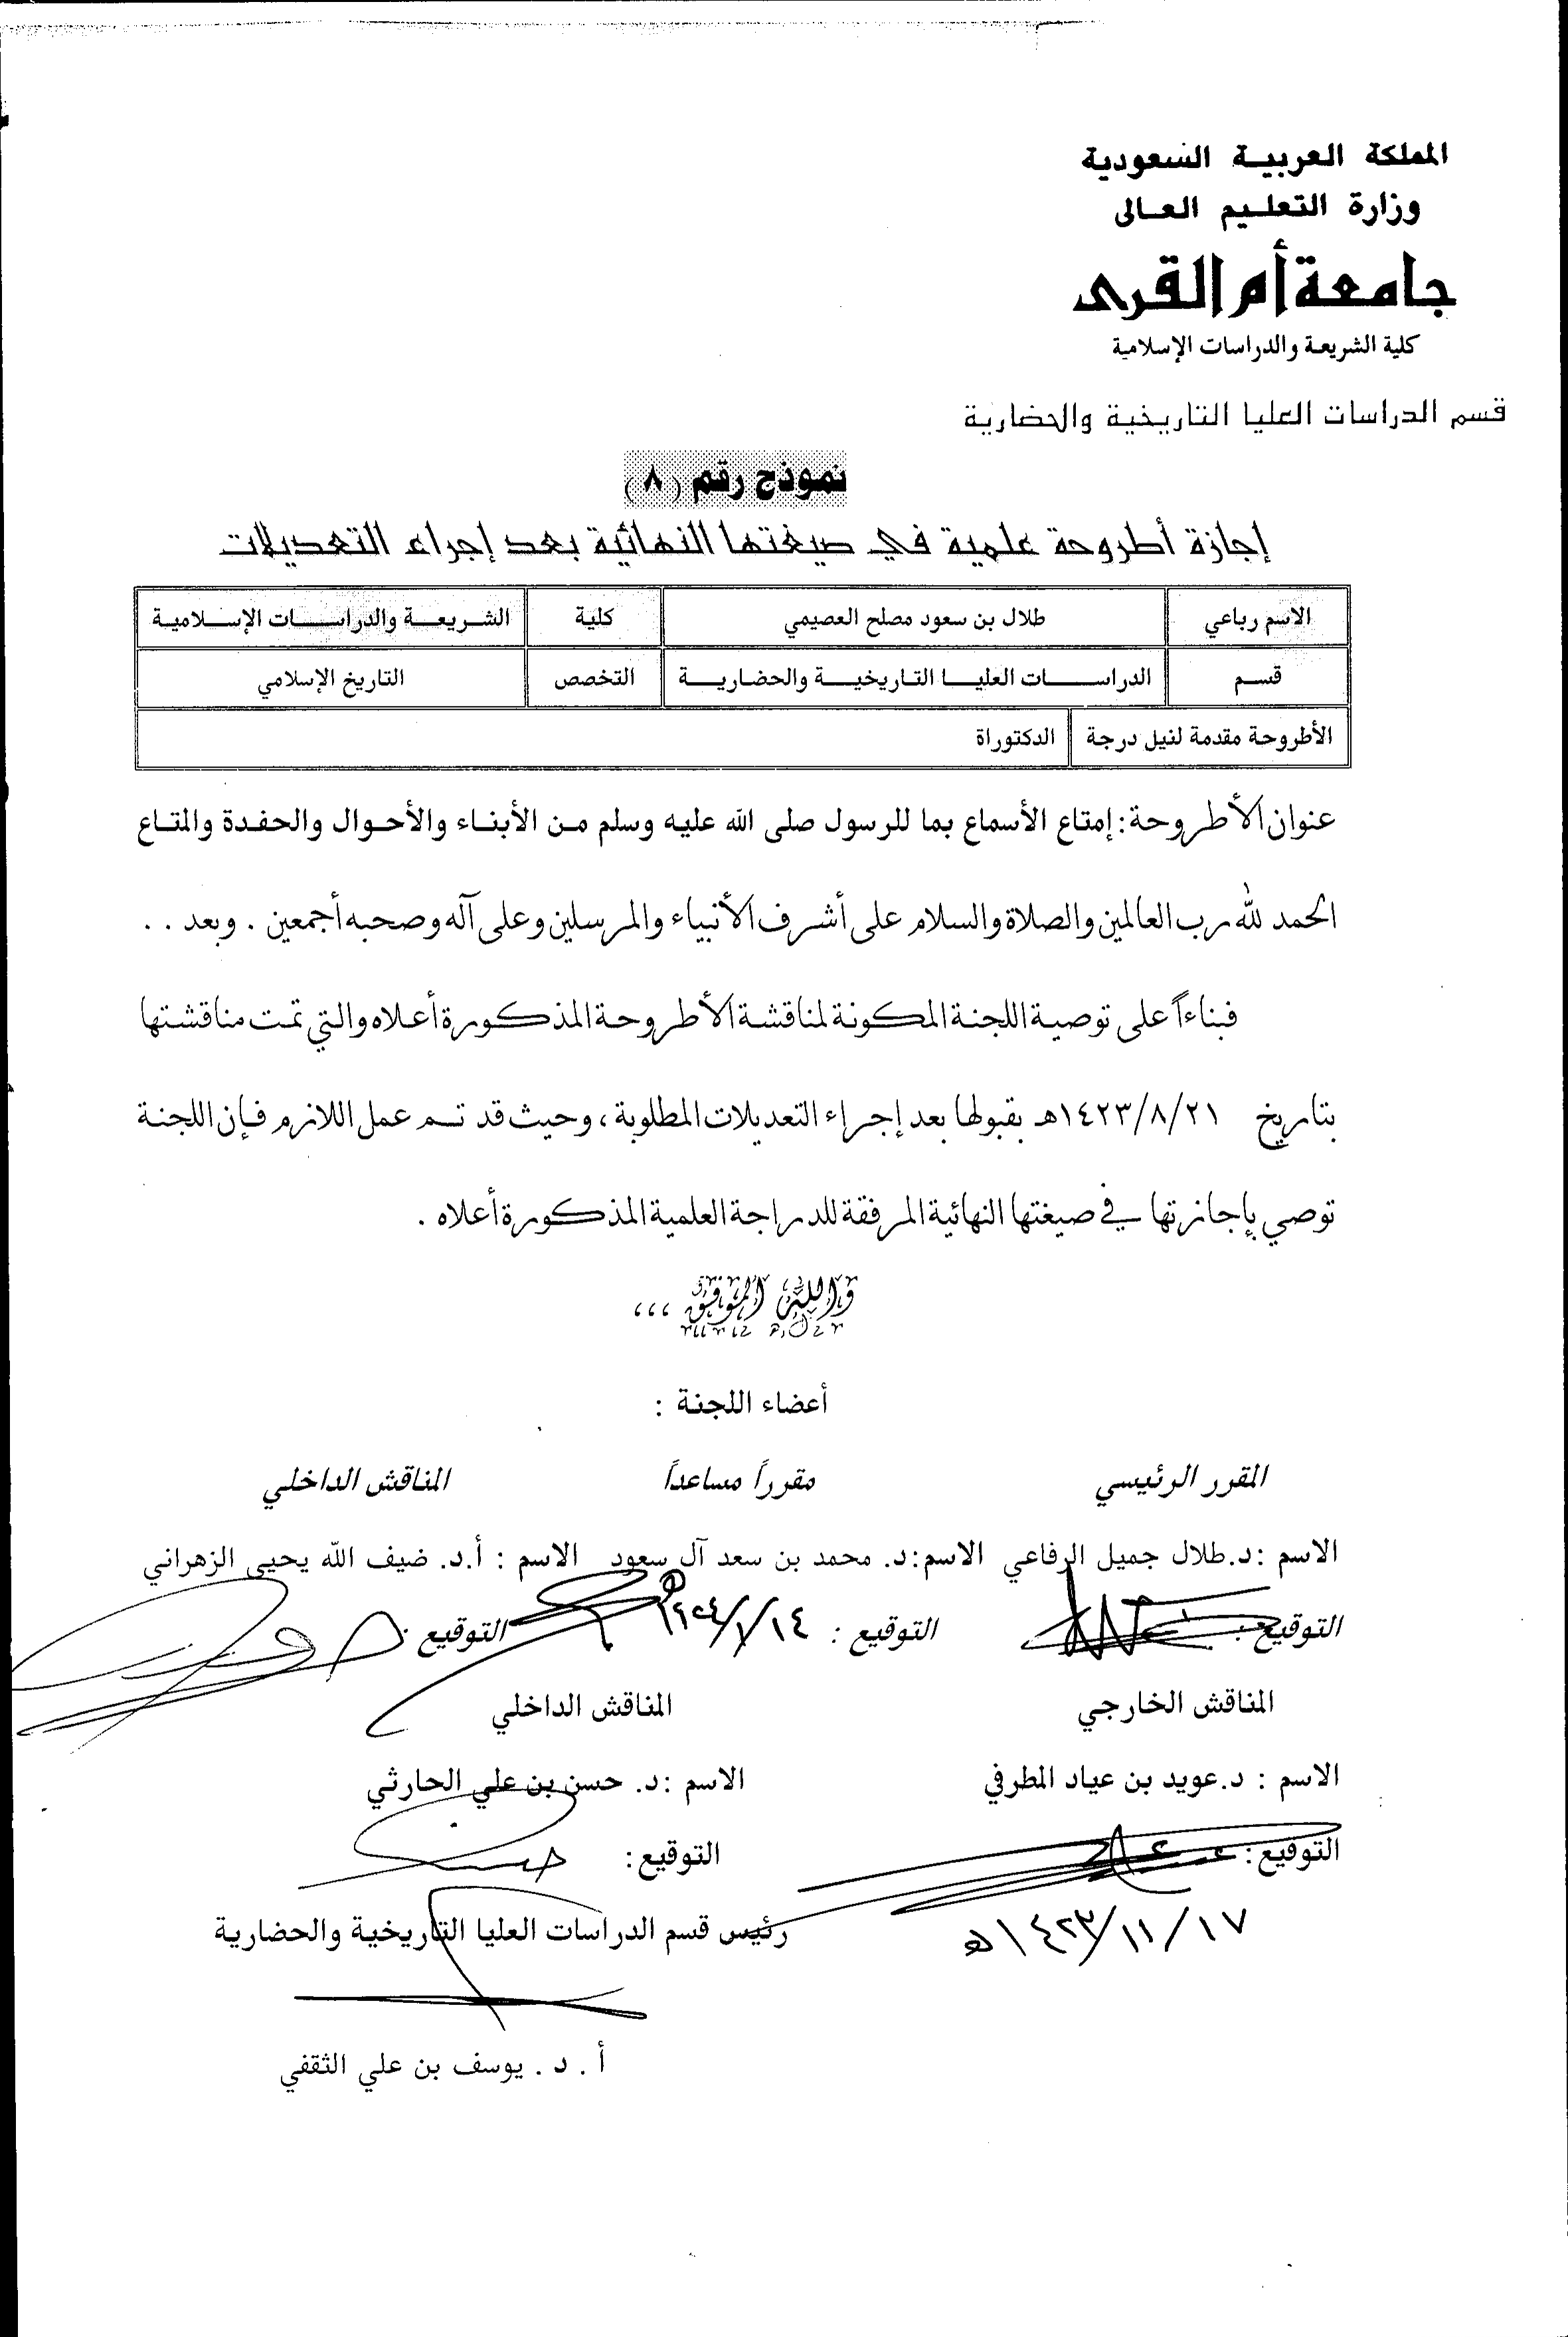 المملكة العربية السعودية
وزارة التعليم العالى
جامعة أم القرى
كلية الشريعة والدراسات الإسلامية
قسم الدراسات العليا التاريخية والحضارية
نموذج رقم (٨)
إجازة أطروحة علمية في صيغتها النهائية بعد إجراء التعديلات
الاسم رباعي طلال بن سعود مصلح العصيمي كلية الشريعة والدراسات الإسلامية
قسم الدراسات العليا التاريخية والحضارية التخصص التاريخ الإسلامي
الأطروحة مقدمة لنيل درجة الدكتوراة
عنوان الأطروحة: إمتاع الأسماع بما للرسول صلى الله عليه وسلم من الأبناء والأحوال والحفدة والمتاع
الحمد لله رب العالمين والصلاة والسلام على أشرف الأنبياء والمرسلين وعلى آله وصحبه أجمعين . وبعد . .
فبناءاً على توصية اللجنة المكونة لمناقشة الأطروحة المذكورة أعلاه والتي تمت مناقشتها
بتاريخ ١٤٢٣/٨/٢١هـ بقبولها بعد إجراء التعديلات المطلوبة ، وحيث قد تم عمل اللازم فإن اللجنة
توصي بإجازتها في صيغتها النهائية المرفقة للدراجة العلمية المذكورة أعلاه .
والله الموفق ،،،
أعضاء اللجنة :
المقرر الرئيسي مقرراً مساعداً المناقش الداخلي
الاسم :د.طلال جميل الرفاعي الاسم:د. محمد بن سعد آل سعود الاسم : أ.د. ضيف الله يحيى الزهراني
التوقيع: التوقيع : التوقيع :
المناقش الخارجي المناقش الداخلي
الاسم : د.عويد بن عياد المطرفي الاسم :د. حسن بن علي الحارثي
التوقيع: التوقيع:
١٤٢٣/١١/١٧هـ رئيس قسم الدراسات العليا التاريخية والحضارية
أ . د . يوسف بن علي الثقفي